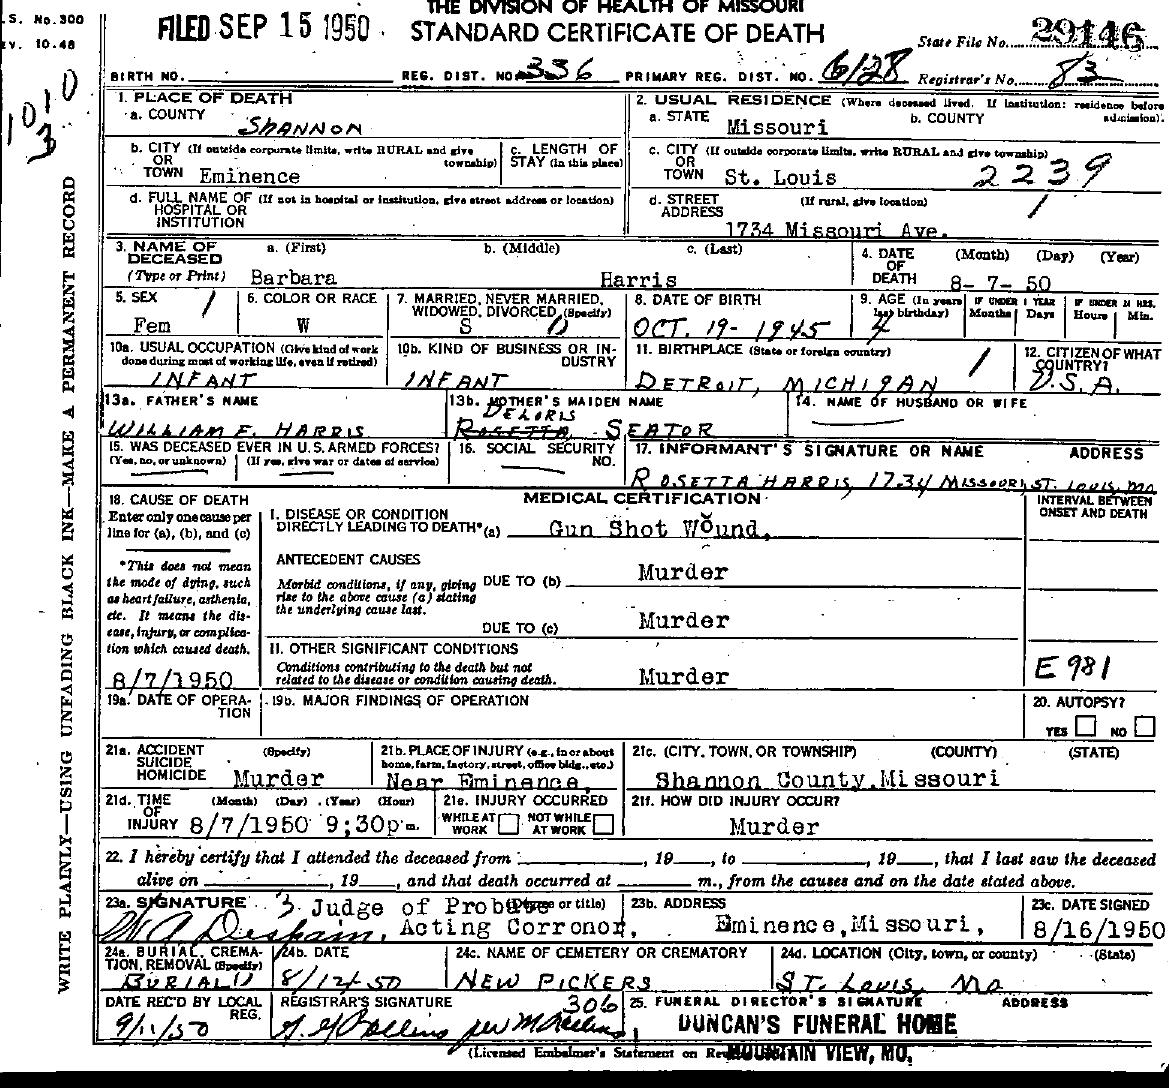 THE DIVISION OF HEALTH OF MISSOURI
S. No. 300
FILED SEP 15 1950
STANDARD CERTIFICATE OF DEATH
State File No. 29146
V. 10.48
BIRTH NO. REG. DIST. NO. 336 PRIMARY REG. DIST. NO. 6128 Registrar's No. 83
1010
3
WRITE PLAINLY—USING UNFADING BLACK INK—MAKE A PERMANENT RECORD
1. PLACE OF DEATH
a. COUNTY SHANNON
2. USUAL RESIDENCE (Where deceased lived. If institution: residence before admission).
a. STATE Missouri b. COUNTY
b. CITY (If outside corporate limits, write RURAL and give township)
OR
TOWN Eminence
c. LENGTH OF
STAY (in this place)
c. CITY (If outside corporate limits, write RURAL and give township)
OR
TOWN St. Louis 2239
d. FULL NAME OF (If not in hospital or institution, give street address or location)
HOSPITAL OR
INSTITUTION
d. STREET (If rural, give location)
ADDRESS
1734 Missouri Ave.
1
3. NAME OF
DECEASED
(Type or Print)
a. (First) b. (Middle) c. (Last)
Barbara Harris
4. DATE
OF
DEATH
(Month) (Day) (Year)
8- 7- 50
5. SEX 1
Fem
6. COLOR OR RACE
W
7. MARRIED, NEVER MARRIED,
WIDOWED, DIVORCED (Specify)
S 0
8. DATE OF BIRTH
OCT. 19- 1945
9. AGE (In years
last birthday)
4
IF UNDER 1 YEAR
Months Days
IF UNDER 24 HRS.
Hours Min.
10a. USUAL OCCUPATION (Give kind of work
done during most of working life, even if retired)
INFANT
10b. KIND OF BUSINESS OR IN-
DUSTRY
INFANT
11. BIRTHPLACE (State or foreign country)
DETROIT, MICHIGAN 1
12. CITIZEN OF WHAT
COUNTRY?
U.S.A.
13a. FATHER'S NAME
WILLIAM E. HARRIS
13b. MOTHER'S MAIDEN NAME
DELORIS
ROSETTA SEATOR
14. NAME OF HUSBAND OR WIFE
15. WAS DECEASED EVER IN U.S. ARMED FORCES?
(Yes, no, or unknown) (If yes, give war or dates of service)
16. SOCIAL SECURITY
NO.
17. INFORMANT'S SIGNATURE OR NAME ADDRESS
ROSETTA HARRIS, 1734 MISSOURI, ST. LOUIS, MO
18. CAUSE OF DEATH
Enter only one cause per
line for (a), (b), and (c)
*This does not mean
the mode of dying, such
as heart failure, asthenia,
etc. It means the dis-
ease, injury, or complica-
tion which caused death.
8/7/1950
MEDICAL CERTIFICATION
INTERVAL BETWEEN
ONSET AND DEATH
I. DISEASE OR CONDITION
DIRECTLY LEADING TO DEATH*(a) Gun Shot Wound,
ANTECEDENT CAUSES
Morbid conditions, if any, giving
rise to the above cause (a) stating
the underlying cause last.
DUE TO (b) Murder
DUE TO (c) Murder
II. OTHER SIGNIFICANT CONDITIONS
Conditions contributing to the death but not
related to the disease or condition causing death.
Murder
E 981
19a. DATE OF OPERA-
TION
19b. MAJOR FINDINGS OF OPERATION
20. AUTOPSY?
YES NO
21a. ACCIDENT (Specify)
SUICIDE
HOMICIDE Murder
21b. PLACE OF INJURY (e.g., in or about
home, farm, factory, street, office bldg., etc.)
Near Eminence,
21c. (CITY, TOWN, OR TOWNSHIP) (COUNTY) (STATE)
Shannon County,Missouri
21d. TIME (Month) (Day) (Year) (Hour)
OF
INJURY 8/7/1950 9;30p m.
21e. INJURY OCCURRED
WHILE AT WORK NOT WHILE AT WORK
21f. HOW DID INJURY OCCUR?
Murder
22. I hereby certify that I attended the deceased from , 19 , to , 19 , that I last saw the deceased
alive on , 19 , and that death occurred at m., from the causes and on the date stated above.
23a. SIGNATURE 3 Judge of Probate (Degree or title)
W A Desham, Acting Corronor,
23b. ADDRESS
Eminence,Missouri,
23c. DATE SIGNED
8/16/1950
24a. BURIAL, CREMA-
TION, REMOVAL (Specify)
BURIAL
24b. DATE
8/12/50
24c. NAME OF CEMETERY OR CREMATORY
NEW PICKERS
24d. LOCATION (City, town, or county) (State)
ST. LOUIS, Mo
DATE REC'D BY LOCAL
REG.
9/11/50
REGISTRAR'S SIGNATURE 306
25. FUNERAL DIRECTOR'S SIGNATURE ADDRESS
DUNCAN'S FUNERAL HOME
MOUNTAIN VIEW, MO.
(Licensed Embalmer's Statement on